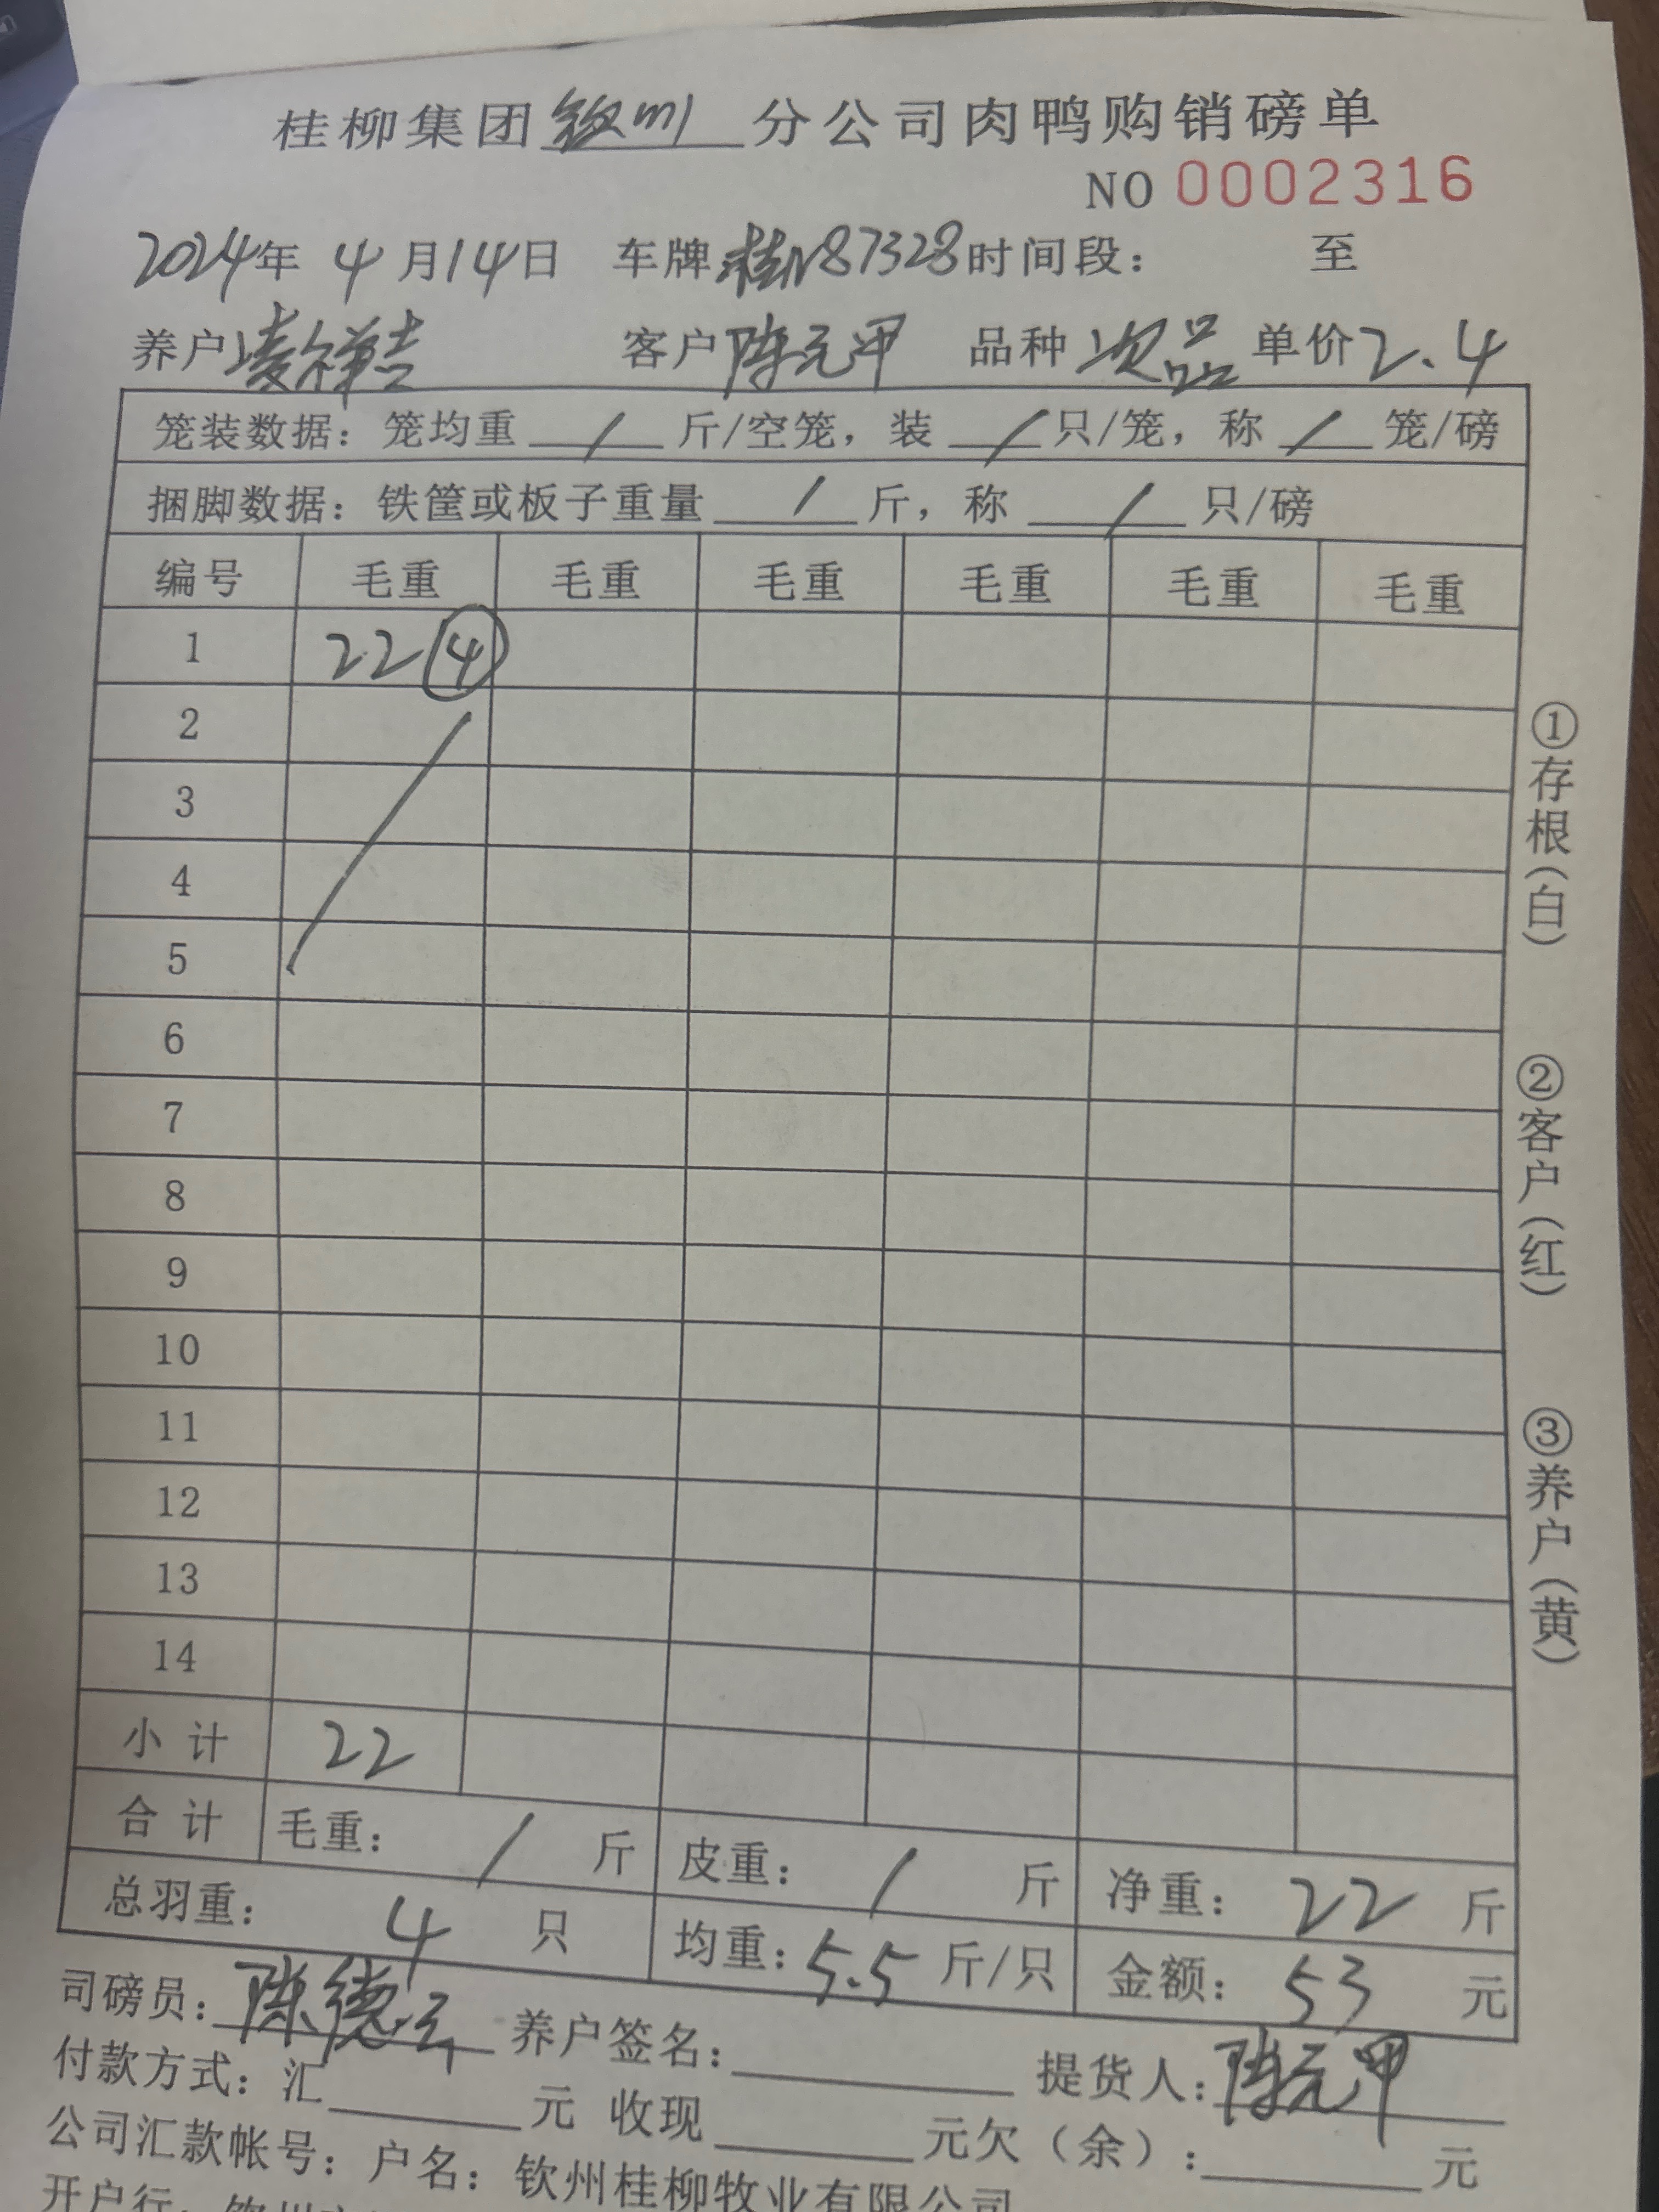 桂柳集团钦州分公司肉鸭购销磅单
NO 0002316
2024年 4月14日 车牌桂N87328时间段： 至
养户凌祥吉 客户陈元甲 品种次品 单价2.4
笼装数据：笼均重 / 斤/空笼，装 / 只/笼，称 / 笼/磅
捆脚数据：铁筐或板子重量 / 斤，称 / 只/磅
编号 毛重 毛重 毛重 毛重 毛重 毛重
1 22 ④
2
3
4
5
6
7
8
9
10
11
12
13
14
小计 22
合计 毛重： / 斤 皮重： / 斤 净重：22 斤
总羽重： 4 只 均重：5.5 斤/只 金额：53 元
司磅员：陈德云 养户签名： 提货人：陈元甲
付款方式：汇 元 收现 元欠（余）： 元
公司汇款帐号：户名：钦州桂柳牧业有限公司
开户行：钦州
①存根（白）
②客户（红）
③养户（黄）